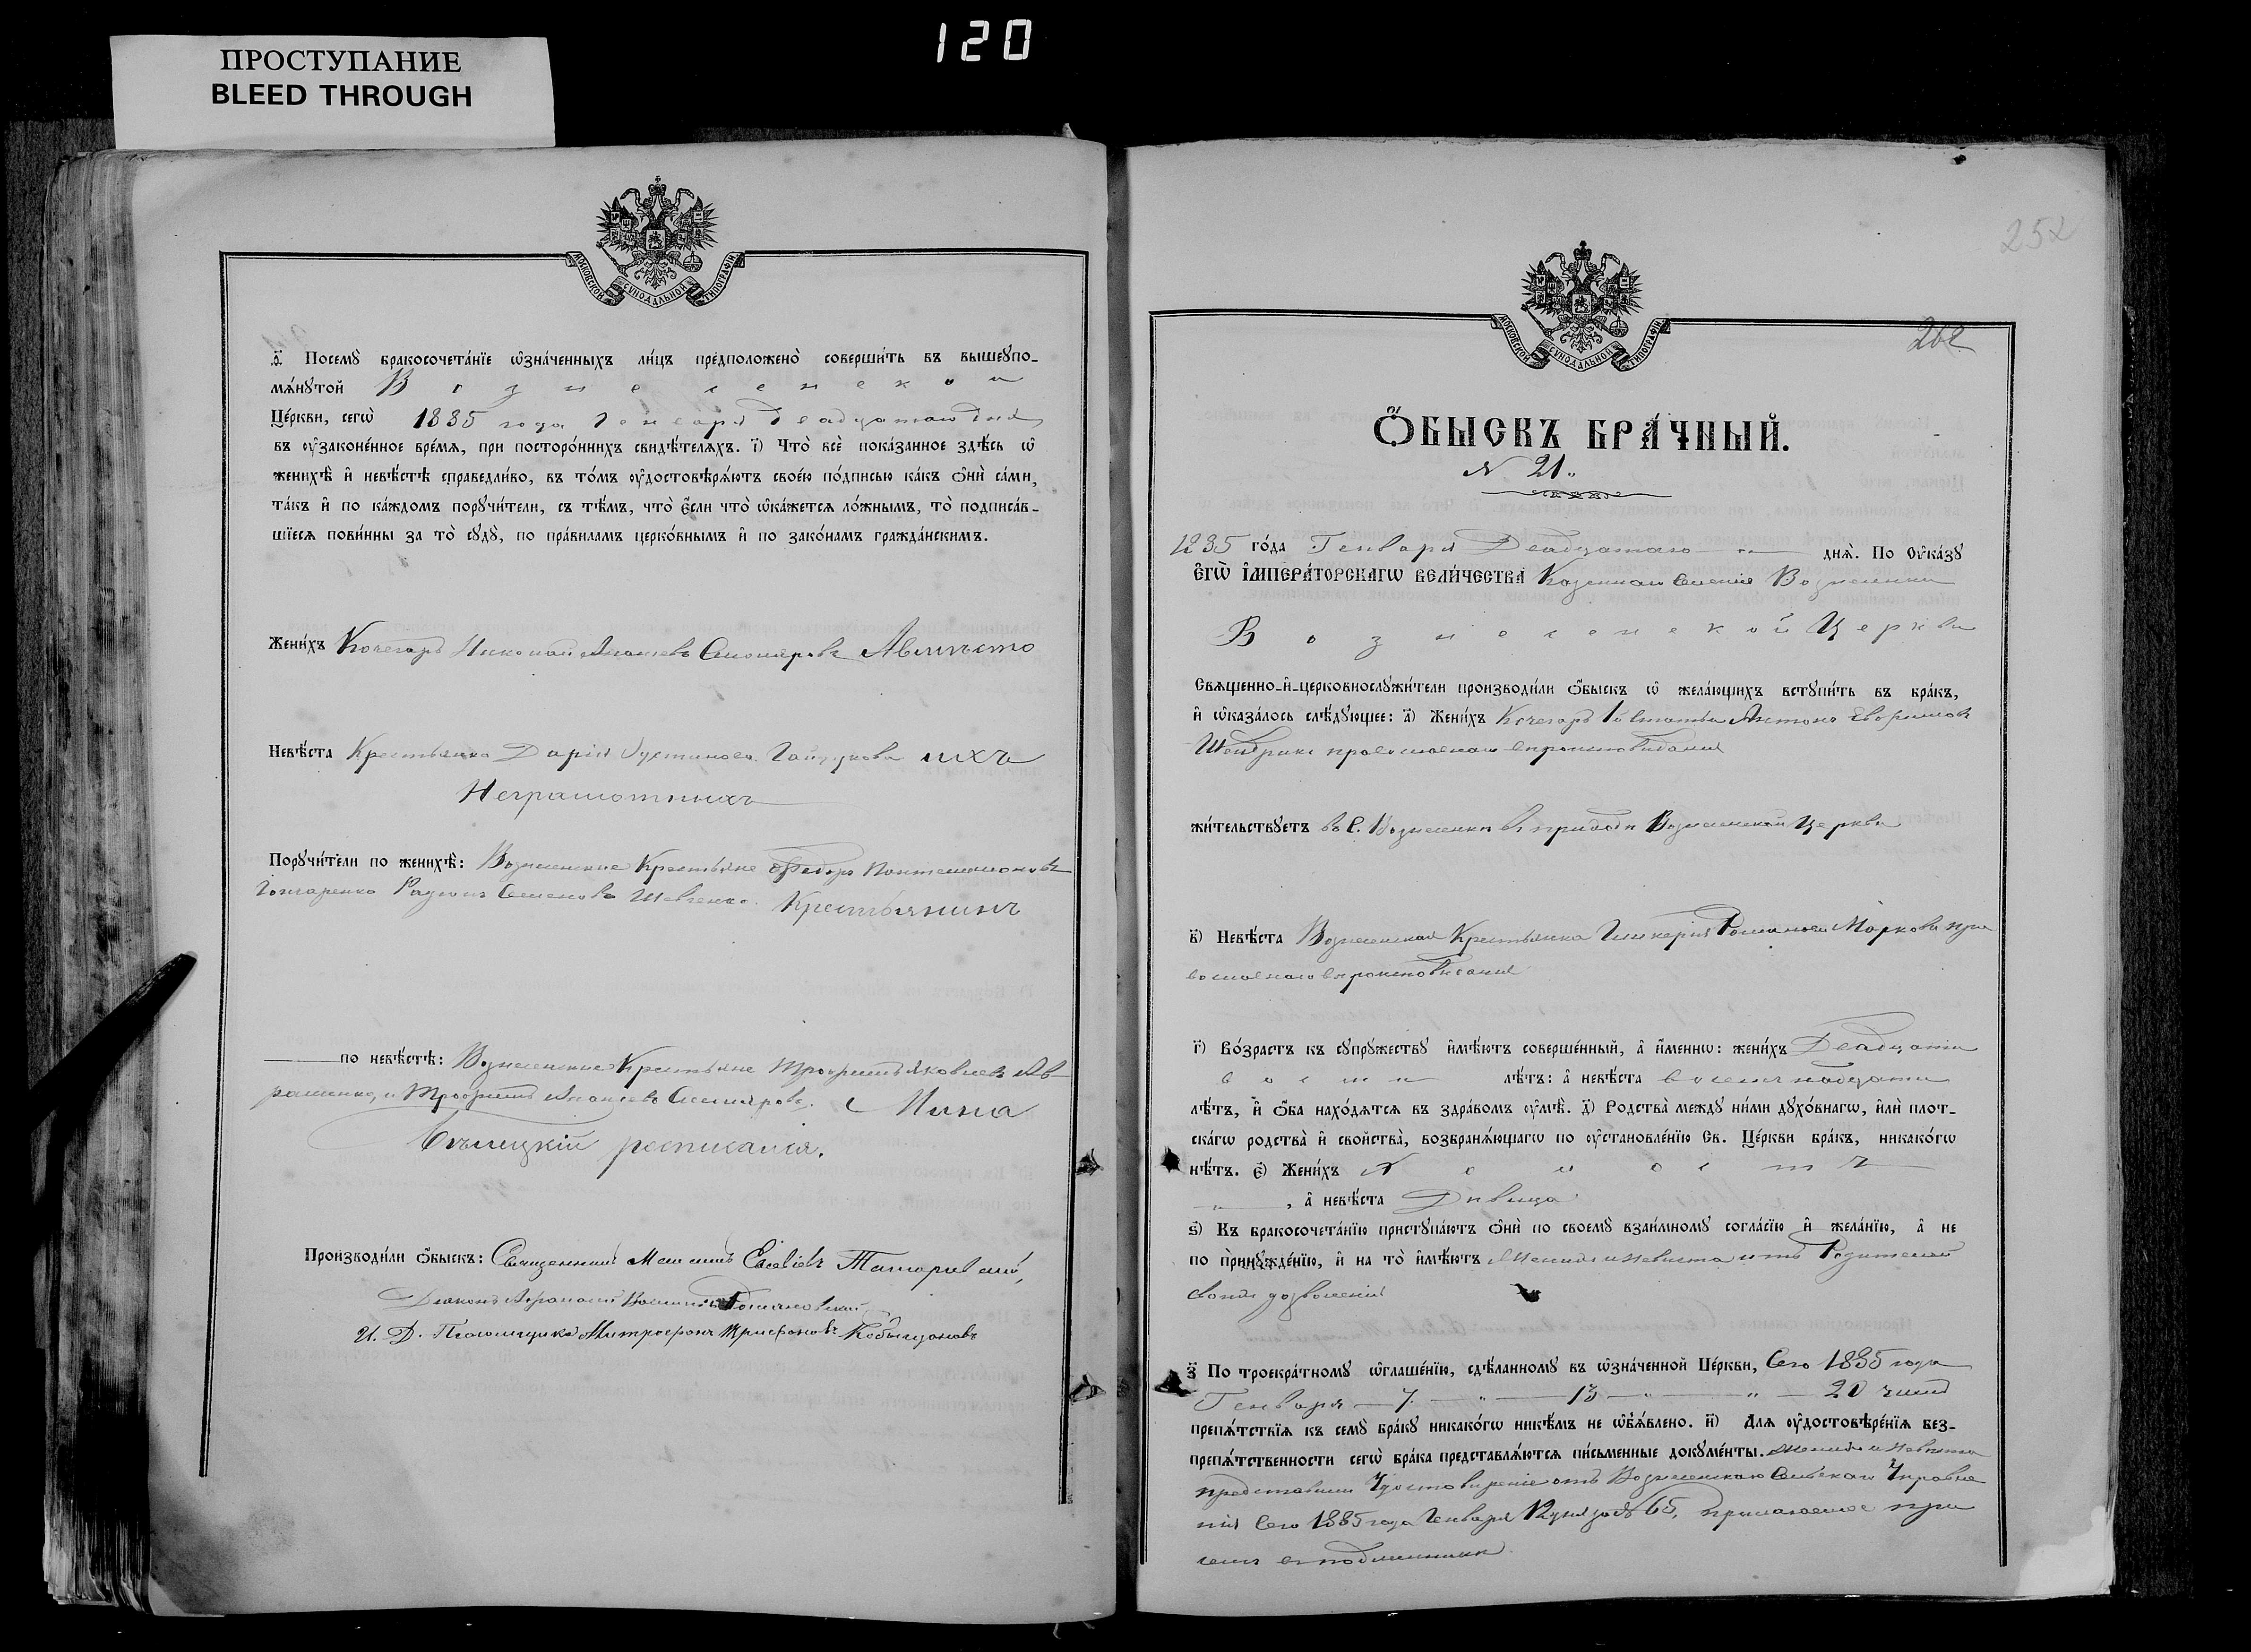 120
ПРОСТУПАНИЕ
BLEED THROUGH
МОСКОВСКОЙ СѴНОДАЛЬНОЙ ТИПОГРАФІИ
Посемꙋ̀ бракосочета́нїе ѡ҆зна́ченныхъ ли́цъ предположено̀ соверши́ть въ вышеꙋпо-
мѧ́нꙋтой Вознесенской
Це́ркви, сегѡ̀ 1885 года Генваря двадцатаго дня
въ ѹ҆законе́нное вре́мѧ, при посторо́ннихъ свидѣ́телѧхъ. і҃) Что̀ всѐ пока́занное здѣ́сь ѡ҆
женихѣ̀ и҆ невѣ́стѣ справедли́во, въ то́мъ ѹ҆достовѣрѧ́ютъ свое́ю по́дписью ка́къ ѻ҆нѝ са́ми,
та́къ и҆ по ка́ждомъ порꙋчи́тели, съ тѣ́мъ, что̀ є҆́сли что̀ ѡ҆ка́жетсѧ ло́жнымъ, то̀ подписа́в-
шїесѧ пови́нны за то̀ сꙋдꙋ̀, по пра́виламъ церко́внымъ и҆ по зако́намъ гражда́нскимъ.
Жени́хъ Кочегаръ Николай Столяровъ Авмѣсто
Невѣ́ста Крестьянка Дарія Устинова Гайдукова ихъ
Неграмотныхъ
Порꙋчи́тели по женихѣ̀: Вознесенские Крестьяне Федоръ Пантелимоновъ
Гончаренко Радионъ Семеновъ Шевченко. Крестьянинъ
по невѣ́стѣ: Вознесенские Крестьяне Трофимъ Яковлевъ Ав-
раменко, и Трофимъ Столяровъ.
росписался.
Производи́ли ѻ҆́быскъ: Священникъ Евсевій
Діаконъ
И. Д. Псаломщика Митрофанъ Трифоновъ
252
МОСКОВСКОЙ СѴНОДАЛЬНОЙ ТИПОГРАФІИ
262
Ѻ҆́БЫСКЪ БРА́ЧНЫЙ.
N 21.
1885 го́да Генваря Двадцатаго днѧ̀. По Ѹ҆ка́зꙋ
Є҆гѡ̀ І҆мпера́торскагѡ Вели́чества Казеннаго Селенія Вознесенки
Вознесенской Церкви
Свѧще́нно-и҆-церковнослꙋжи́тели производи́ли ѻ҆́быскъ ѡ҆ жела́ющихъ встꙋпи́ть въ бра́къ,
и҆ ѡ҆каза́лось слѣ́дꙋющее: а҃) Жени́хъ Кочегаръ Антонъ Евфимовъ
Шендрикъ православнаго вѣроисповѣданія
жи́тельствꙋетъ въ С. Вознесенкѣ въ приходѣ Вознесенской Церкви
в҃) Невѣ́ста Вознесенская Крестьянка Гликерія Романова Маркова пра
вославнаго вѣроисповѣданія
г҃) Во́зрастъ къ сꙋпрꙋ́жествꙋ и҆мѣ́ютъ соверше́нный, а҆ и҆́меннѡ: жени́хъ Двадцати
восьми лѣ́тъ: а҆ невѣ́ста восемнадцати
лѣ́тъ, и҆ ѻ҆́ба нахо́дѧтсѧ въ здра́вомъ ѹ҆мѣ̀. д҃) Родства̀ междꙋ̀ ни́ми дꙋхо́внагѡ, и҆лѝ плот-
ска́гѡ родства̀ и҆ свойства̀, возбранѧ́ющагѡ по ѹ҆становле́нїю Св. Це́ркви бра́къ, никако́гѡ
нѣ́тъ. є҃) Жени́хъ Холостъ
, а҆ невѣ́ста Дѣвица
ѕ҃) Къ бракосочета́нїю пристꙋпа́ютъ ѻ҆нѝ по своемꙋ̀ взаи́мномꙋ согла́сїю и҆ жела́нїю, а҆ не
по принꙋжде́нїю, и҆ на то̀ и҆мѣ́ютъ Женихъ и Невѣста отъ Родителей
своихъ дозволеніе
з҃ По троекра́тномꙋ ѡ҆глаше́нїю, сдѣ́ланномꙋ въ ѡ҆зна́ченной Це́ркви, Сего 1885 года
Генваря 7 " 13 " " 20 числа
препѧ́тствїѧ къ семꙋ̀ бра́кꙋ никако́гѡ никѣ́мъ не ѡ҆б̾ѧ́влено. и҃) Длѧ ѹ҆достовѣре́нїѧ без-
препѧ́тственности сегѡ̀ бра́ка представлѧ́ютсѧ пи́сьменные докꙋме́нты. женихъ и невѣста
представили Удостовѣреніе отъ Вознесенскаго Сельскаго Управле
нія Сего 1885 года Генваря за № 65, прилагаемое при
семъ въ подлинникѣ